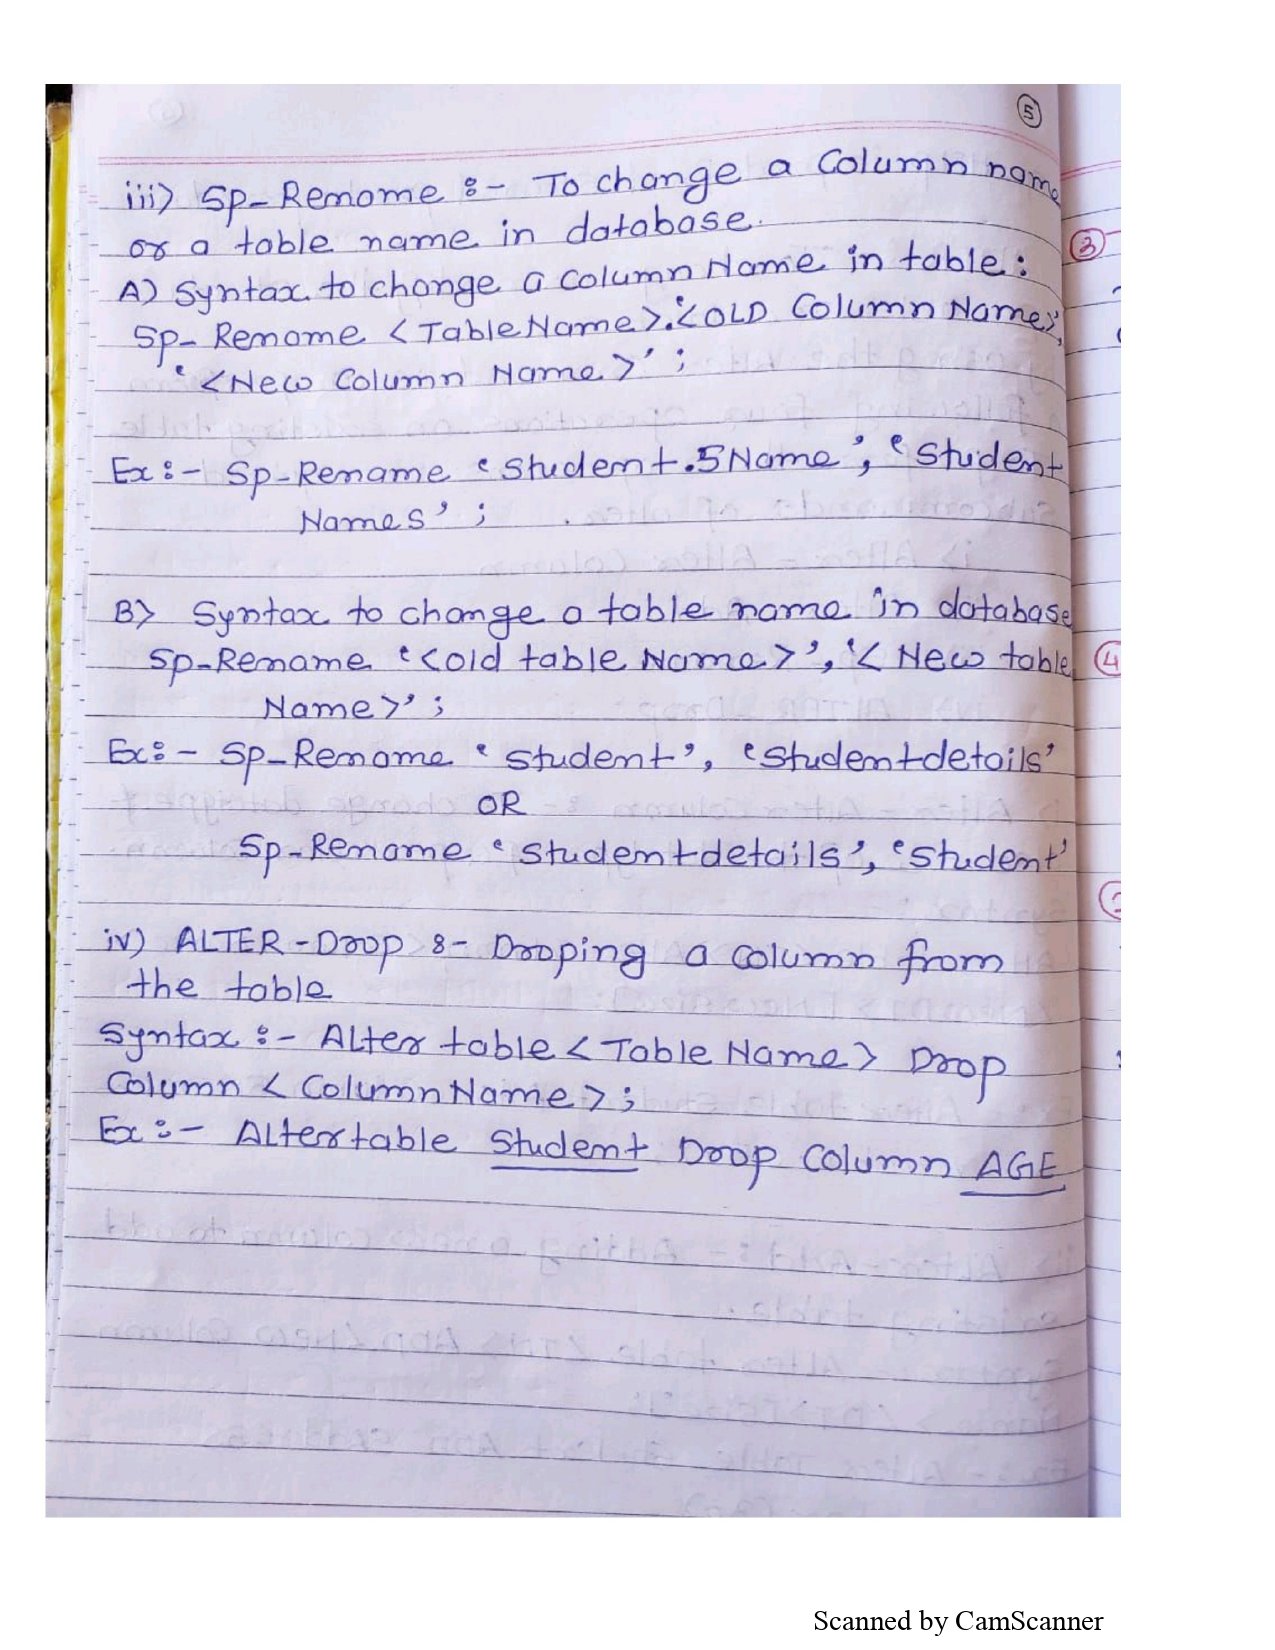 5
iii) Sp-Rename :- To change a Column name
or a table name in database.
A) Syntax to change a Column Name in table :
Sp-Rename <Table Name>.'<OLD Column Name>,
'<New Column Name>' ;
Ex :- Sp-Rename 'Student.SName', 'Student
Names' ;
B) Syntax to change a table name in database
Sp-Rename '<old table Name>', '<New table
Name>' ;
Ex :- Sp-Rename 'Student', 'Studentdetails'
OR
Sp-Rename 'Studentdetails', 'Student'
iv) ALTER-Drop :- Droping a column from
the table
Syntax :- Alter table <Table Name> Drop
Column <Column Name> ;
Ex :- Alter table Student Drop Column AGE
3
4
Scanned by CamScanner